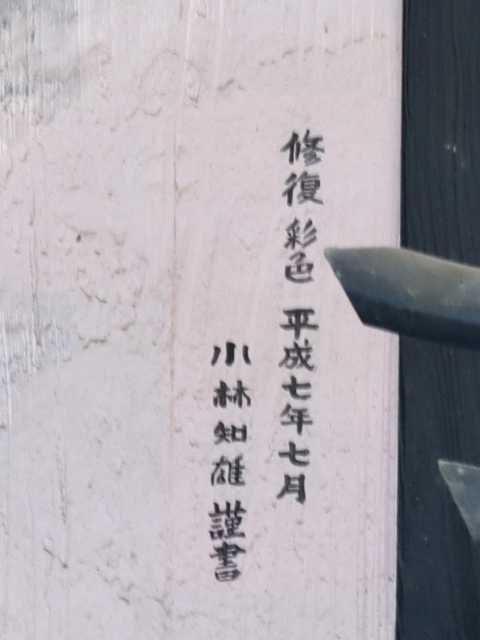 修復彩色 平成七年七月
小林知雄 謹書